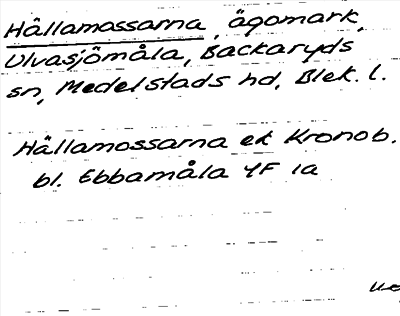 Hållamossarna, ägomark,
Ulvasjömåla, Backaryds
sn, Medelstads hd, Blek. l.
Hållamossarna ek Kronob.
bl. Ebbamåla 4F 1a